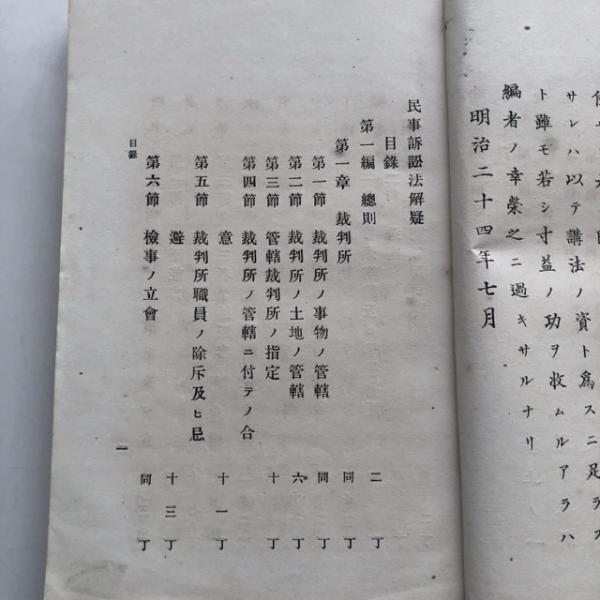 サレハ以テ講法ノ資ト爲スニ足ラス
ト雖モ若シ寸益ノ功ヲ收ムルアラハ
編者ノ幸榮之ニ過キサルナリ
明治二十四年七月
民事訴訟法解疑
目錄
第一編 總則 二丁
第一章 裁判所 同丁
第一節 裁判所ノ事物ノ管轄 同丁
第二節 裁判所ノ土地ノ管轄 六丁
第三節 管轄裁判所ノ指定 十丁
第四節 裁判所ノ管轄ニ付テノ合
意 十一丁
第五節 裁判所職員ノ除斥及ヒ忌
避 十三丁
第六節 檢事ノ立會 同丁
目錄 一